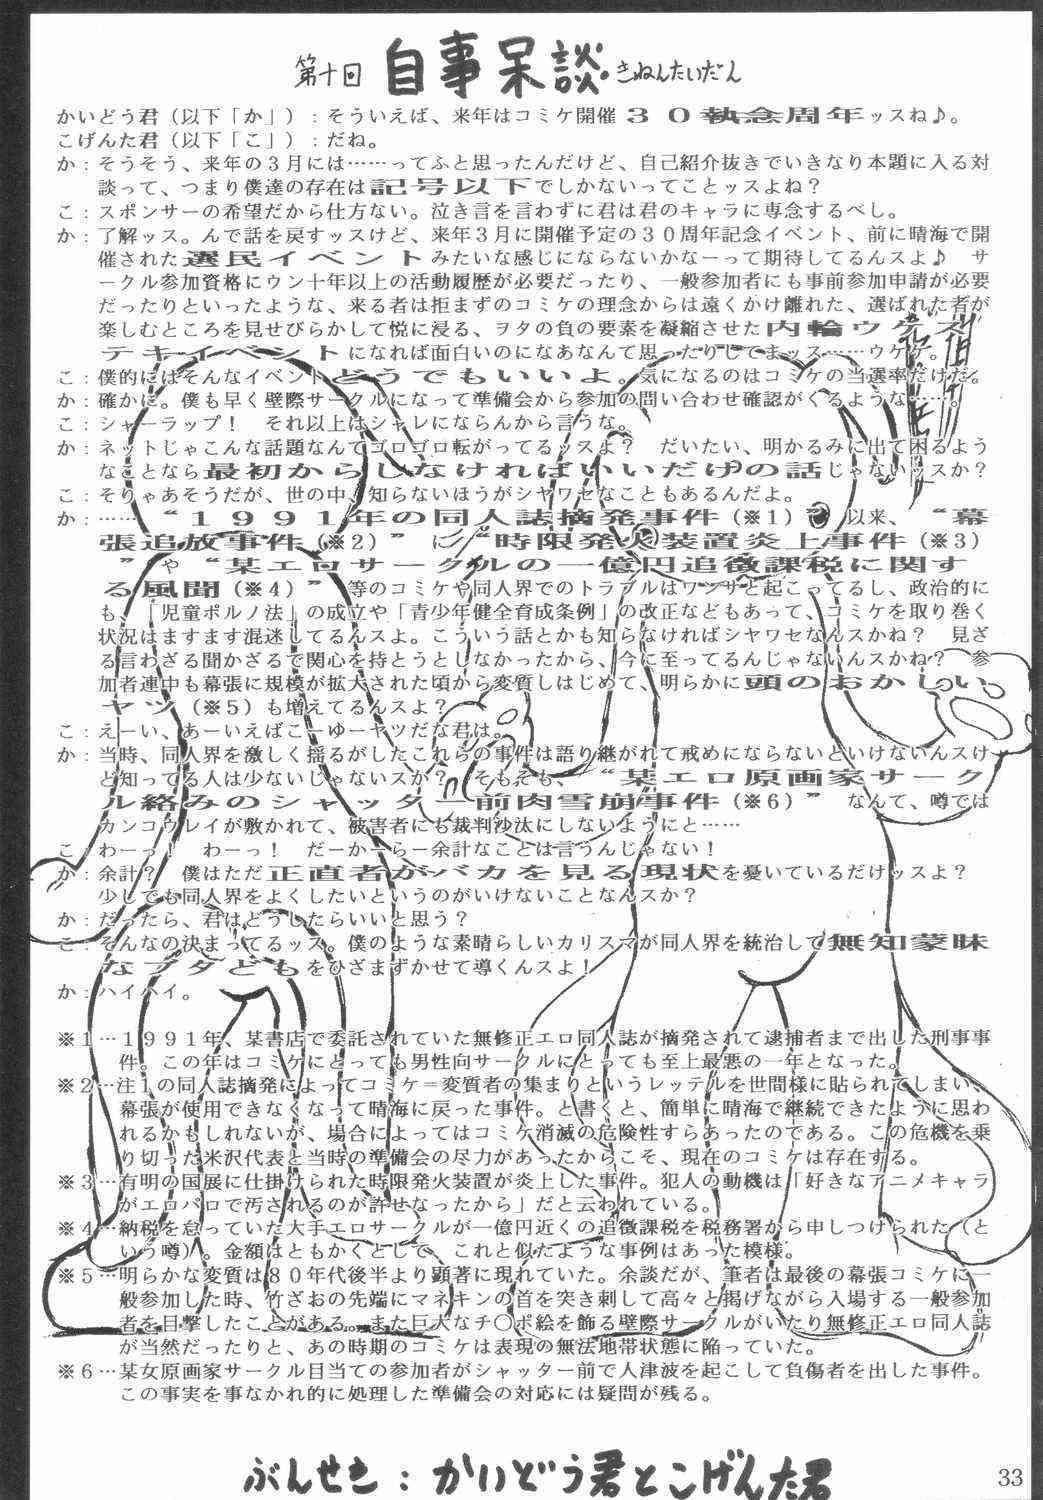 第十回 自事呆談・きねんたいだん
かいどう君（以下「か」）：そういえば、来年はコミケ開催３０執念周年ッスね♪。
こげんた君（以下「こ」）：だね。
か：そうそう、来年の３月には……ってふと思ったんだけど、自己紹介抜きでいきなり本題に入る対
談って、つまり僕達の存在は記号以下でしかないってことッスよね？
こ：スポンサーの希望だから仕方ない。泣き言を言わずに君は君のキャラに専念するべし。
か：了解ッス。んで話を戻すッスけど、来年３月に開催予定の３０周年記念イベント、前に晴海で開
催された選民イベントみたいな感じにならないかなーって期待してるんスよ♪　サ
ークル参加資格にウン十年以上の活動履歴が必要だったり、一般参加者にも事前参加申請が必要
だったりといったような、来る者は拒まずのコミケの理念からは遠くかけ離れた、選ばれた者が
楽しむところを見せびらかして悦に浸る、ヲタの負の要素を凝縮させた内輪ウケス
テキイベントになれば面白いのになあなんて思ったりしてまッス……ウケケ。
こ：僕的にはそんなイベントどうでもいいよ。気になるのはコミケの当選率だけだ。
か：確かに。僕も早く壁際サークルになって準備会から参加の問い合わせ確認がくるような……。
こ：シャーラップ！　それ以上はシャレにならんから言うな。
か：ネットじゃこんな話題なんてゴロゴロ転がってるッスよ？　だいたい、明かるみに出て困るよう
なことなら最初からしなければいいだけの話じゃないッスか？
こ：そりゃあそうだが、世の中、知らないほうがシヤワセなこともあるんだよ。
か：……“１９９１年の同人誌摘発事件（※１）”以来、“幕
張追放事件（※２）”に“時限発火装置炎上事件（※３）
”や“某エロサークルの一億円追徴課税に関す
る風聞（※４）”等のコミケや同人界でのトラブルはワンサと起こってるし、政治的に
も、「児童ポルノ法」の成立や「青少年健全育成条例」の改正などもあって、コミケを取り巻く
状況はますます混迷してるんスよ。こういう話とかも知らなければシヤワセなんスかね？　見ざ
る言わざる聞かざるで関心を持とうとしなかったから、今に至ってるんじゃないんスかね？　参
加者連中も幕張に規模が拡大された頃から変質しはじめて、明らかに頭のおかしい
ヤツ（※５）も増えてるんスよ？
こ：えーい、あーいえばこーゆーヤツだな君は。
か：当時、同人界を激しく揺るがしたこれらの事件は語り継がれて戒めにならないといけないんスけ
ど知ってる人は少ないじゃないスか？　そもそも、“某エロ原画家サーク
ル絡みのシャッター前肉雪崩事件（※６）”なんて、噂では
カンコウレイが敷かれて、被害者にも裁判沙汰にしないようにと……
こ：わーっ！　わーっ！　だーかーらー余計なことは言うんじゃない！
か：余計？　僕はただ正直者がバカを見る現状を憂いているだけッスよ？
少しでも同人界をよくしたいというのがいけないことなんスか？
か：だったら、君はどうしたらいいと思う？
こ：そんなの決まってるッス。僕のような素晴らしいカリスマが同人界を統治して無知蒙昧
なブタどもをひざまずかせて導くんスよ！
か：ハイハイ。
※１…１９９１年、某書店で委託されていた無修正エロ同人誌が摘発されて逮捕者まで出した刑事事
件。この年はコミケにとっても男性向サークルにとっても至上最悪の一年となった。
※２…注１の同人誌摘発によってコミケ＝変質者の集まりというレッテルを世間様に貼られてしまい、
幕張が使用できなくなって晴海に戻った事件。と書くと、簡単に晴海で継続できたように思わ
れるかもしれないが、場合によってはコミケ消滅の危険性すらあったのである。この危機を乗
り切った米沢代表と当時の準備会の尽力があったからこそ、現在のコミケは存在する。
※３…有明の国展に仕掛けられた時限発火装置が炎上した事件。犯人の動機は「好きなアニメキャラ
がエロパロで汚されるのが許せなったから」だと云われている。
※４…納税を怠っていた大手エロサークルが一億円近くの追徴課税を税務署から申しつけられた（と
いう噂）。金額はともかくとして、これと似たような事例はあった模様。
※５…明らかな変質は８０年代後半より顕著に現れていた。余談だが、筆者は最後の幕張コミケに一
般参加した時、竹ざおの先端にマネキンの首を突き刺して高々と掲げながら入場する一般参加
者を目撃したことがある。また巨大なチ〇ポ絵を飾る壁際サークルがいたり無修正エロ同人誌
が当然だったりと、あの時期のコミケは表現の無法地帯状態に陥っていた。
※６…某女原画家サークル目当ての参加者がシャッター前で人津波を起こして負傷者を出した事件。
この事実を事なかれ的に処理した準備会の対応には疑問が残る。
ぶんせき：かいどう君とこげんた君
33